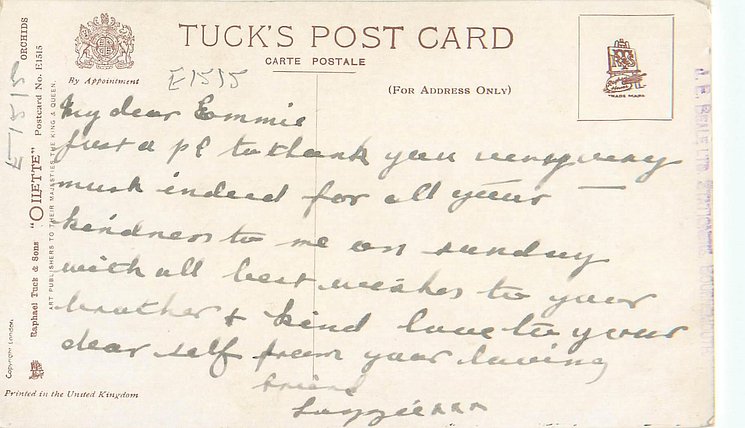 TUCK'S POST CARD
CARTE POSTALE
By Appointment
(FOR ADDRESS ONLY)
TRADE MARK
E1515
My dear Emmie
Just a pc to thank you very very
much indeed for all your —
kindness to me on sunday
with all best wishes to your
brother & kind love to your
dear self from your loving
friend
Lizzie xxx
Printed in the United Kingdom
Copyright London.
Raphael Tuck & Sons "OILETTE" Postcard No. E1515 ORCHIDS
ART PUBLISHERS TO THEIR MAJESTIES THE KING & QUEEN.
E 1515
J. E. BEALE LTD.